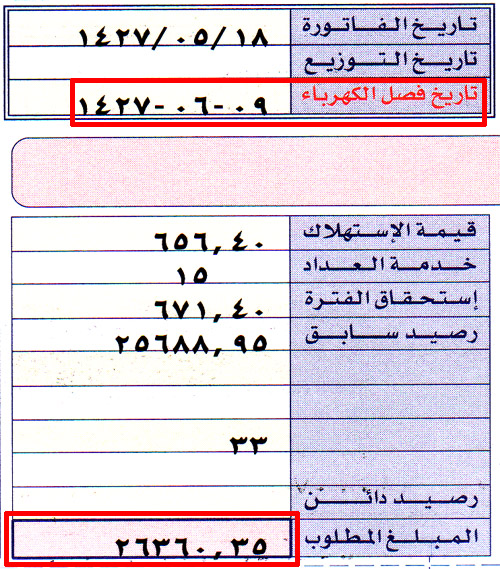 تاريخ الفاتورة ١٤٢٧/٠٥/١٨
تاريخ التوزيع
تاريخ فصل الكهرباء ١٤٢٧-٠٦-٠٩
قيمة الإستهلاك ٦٥٦,٤٠
خدمة العداد ١٥
إستحقاق الفترة ٦٧١,٤٠
رصيد سابق ٢٥٦٨٨,٩٥
٣٣
رصيد دائن
المبلغ المطلوب ٢٦٣٦٠,٣٥